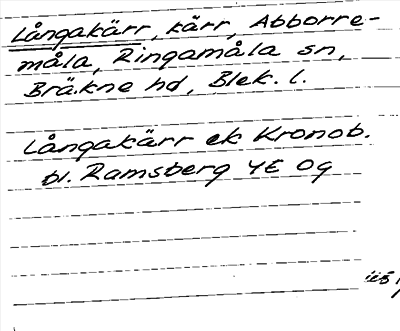 Långakärr, kärr, Abborre-
måla, Ringamåla sn,
Bräkne hd, Blek. l.
Långakärr ek Kronob.
bl. Ramsberg 4E 0g